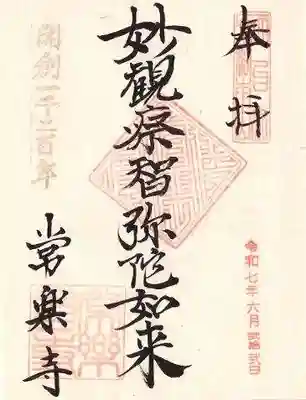 奉拝
妙觀察智弥陀如来
開創一千二百年
常楽寺
令和七年六月弐拾弐日